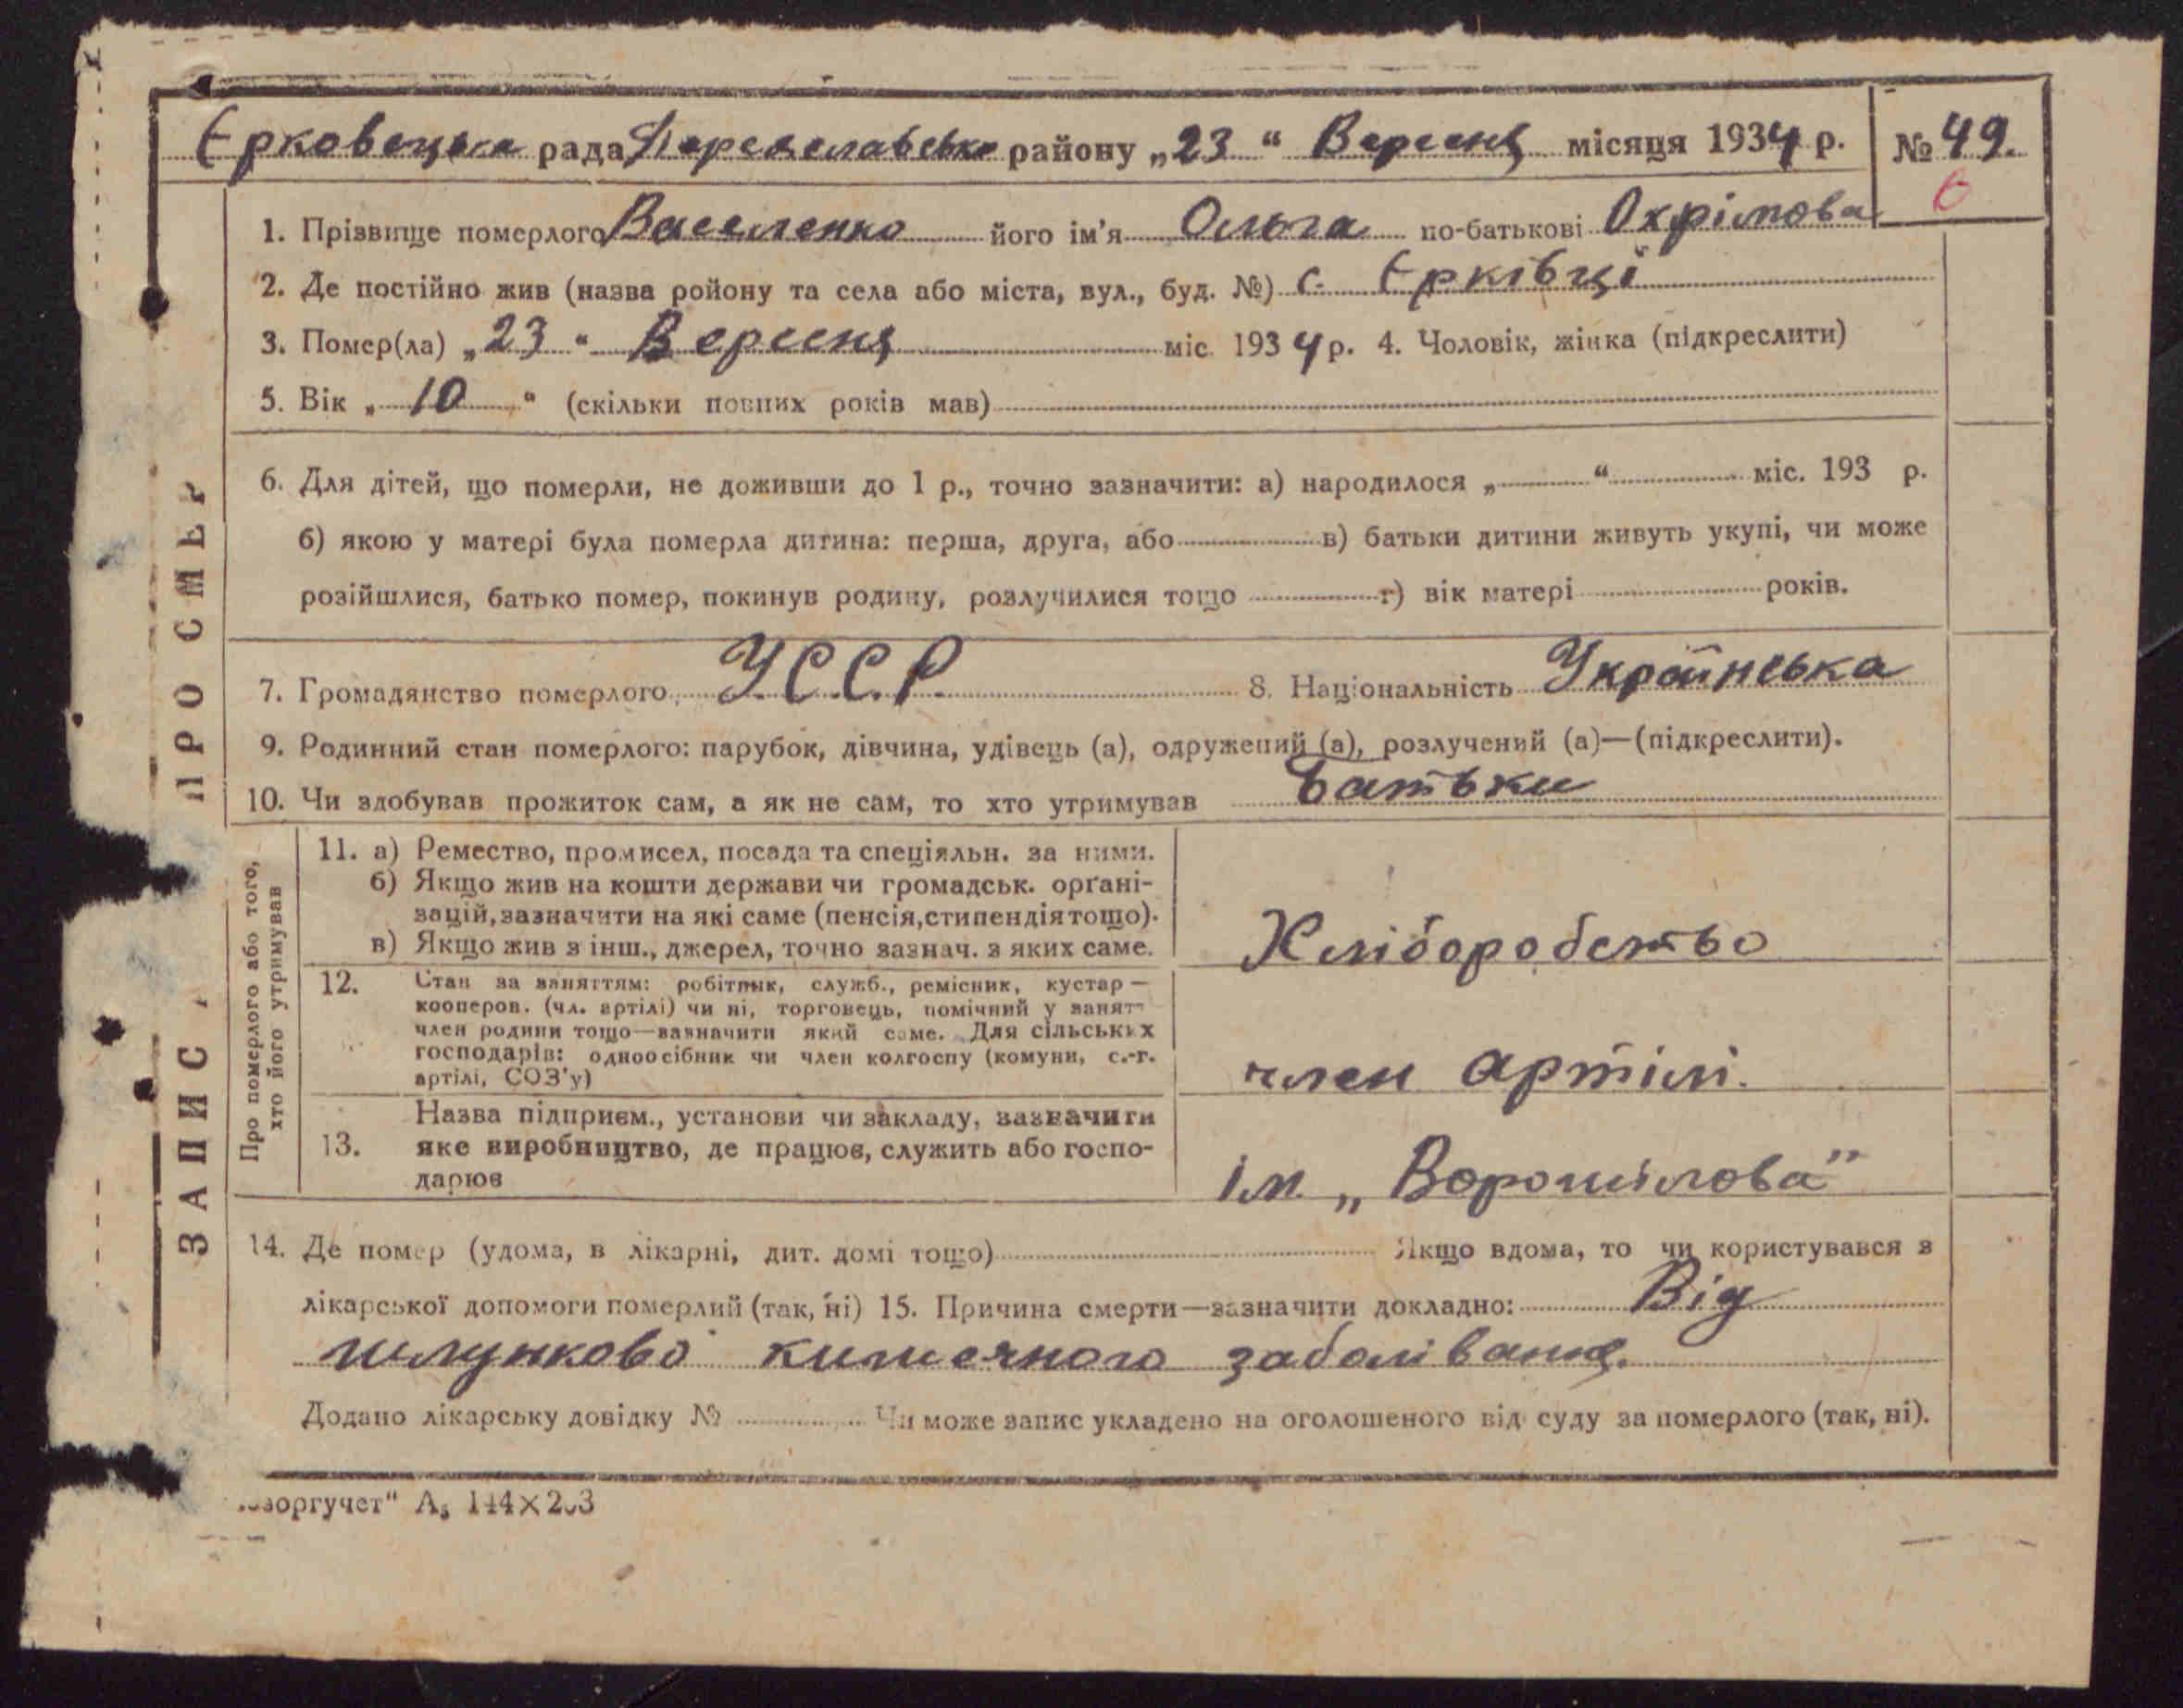 Єрковецька рада Переяславсько району „23“ Вересня місяця 1934 р. № 49.
6
1. Прізвище померлого Василенко його ім'я Ольга по-батькові Охрімова
2. Де постійно жив (назва ройону та села або міста, вул., буд. №) с. Єрківці
3. Помер(ла) „23“ Вересня міс. 1934 р. 4. Чоловік, жінка (підкреслити)
5. Вік „10“ (скільки повних років мав)
6. Для дітей, що померли, не доживши до 1 р., точно зазначити: а) народилося „ “ міс. 193 р.
б) якою у матері була померла дитина: перша, друга, або в) батьки дитини живуть укупі, чи може
розійшлися, батько помер, покинув родину, розлучилися тощо г) вік матері років.
7. Громадянство померлого У.С.С.Р. 8. Національність Українська
9. Родинний стан померлого: парубок, дівчина, удівець (а), одружений (а), розлучений (а)—(підкреслити).
10. Чи здобував прожиток сам, а як не сам, то хто утримував Батьки
ЗАПИС ПРО СМЕР
Про померлого або того,
хто його утримував
11. а) Ремество, промисел, посада та спеціяльн. за ними.
б) Якщо жив на кошти держави чи громадськ. орґані-
зацій, зазначити на які саме (пенсія, стипендія тощо).
в) Якщо жив з інш., джерел, точно зазнач. з яких саме.
Хліборобство
12. Стан за заняттям: робітник, служб., ремісник, кустар —
кооперов. (чл. артілі) чи ні, торговець, помічний у занят-
член родини тощо—зазначити який саме. Для сільських
господарів: одноосібник чи член колгоспу (комуни, с.-г.
артілі, СОЗ'у)
член артілі.
13. Назва підприєм., установи чи закладу, зазначити
яке виробництво, де працює, служить або госпо-
дарює
ім. „Ворошілова"
14. Де помер (удома, в лікарні, дит. домі тощо) Якщо вдома, то чи користувався з
лікарської допомоги померлий (так, ні) 15. Причина смерти—зазначити докладно: Від
шлунково кишечного заболівання.
Додано лікарську довідку № Чи може запис укладено на оголошеного від суду за померлого (так, ні).
зоргучет" А₅ 144×203